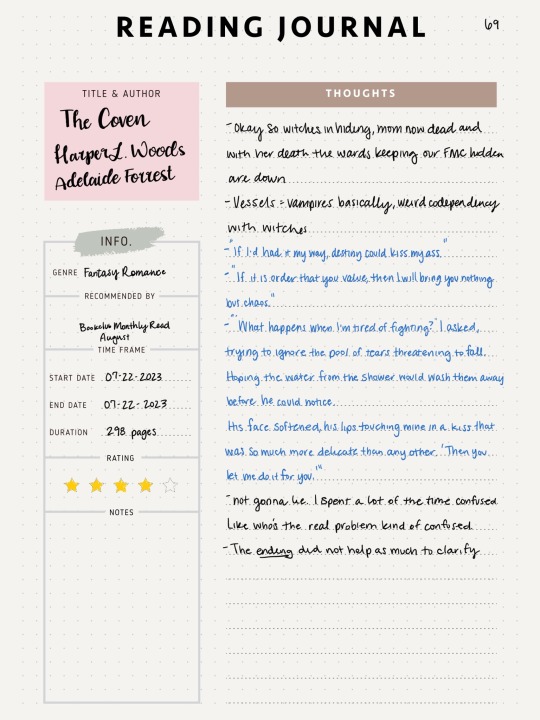 READING JOURNAL
69
TITLE & AUTHOR
The Coven
Harper L. Woods
Adelaide Forrest
INFO.
GENRE Fantasy Romance
RECOMMENDED BY
Bookclub Monthly Read
August
TIME FRAME
START DATE 07-22-2023
END DATE 07-22-2023
DURATION 298 pages
RATING
NOTES
THOUGHTS
- Okay so witches in hiding, mom now dead and
with her death the wards keeping our FMC hidden
are down
- Vessels = vampires basically, weird codependency
with witches
- "If I'd had it my way, destiny could kiss my ass."
- "If it is order that you value, then I will bring you nothing
but chaos."
- "What happens when I'm tired of fighting?" I asked,
trying to ignore the pool of tears threatening to fall.
Hoping the water from the shower would wash them away
before he could notice.
His face softened, his lips touching mine in a kiss that
was so much more delicate than any other. 'Then you
let me do it for you.'"
- not gonna lie.. I spent a lot of the time confused
like who's the real problem kind of confused
- The ending did not help as much to clarify